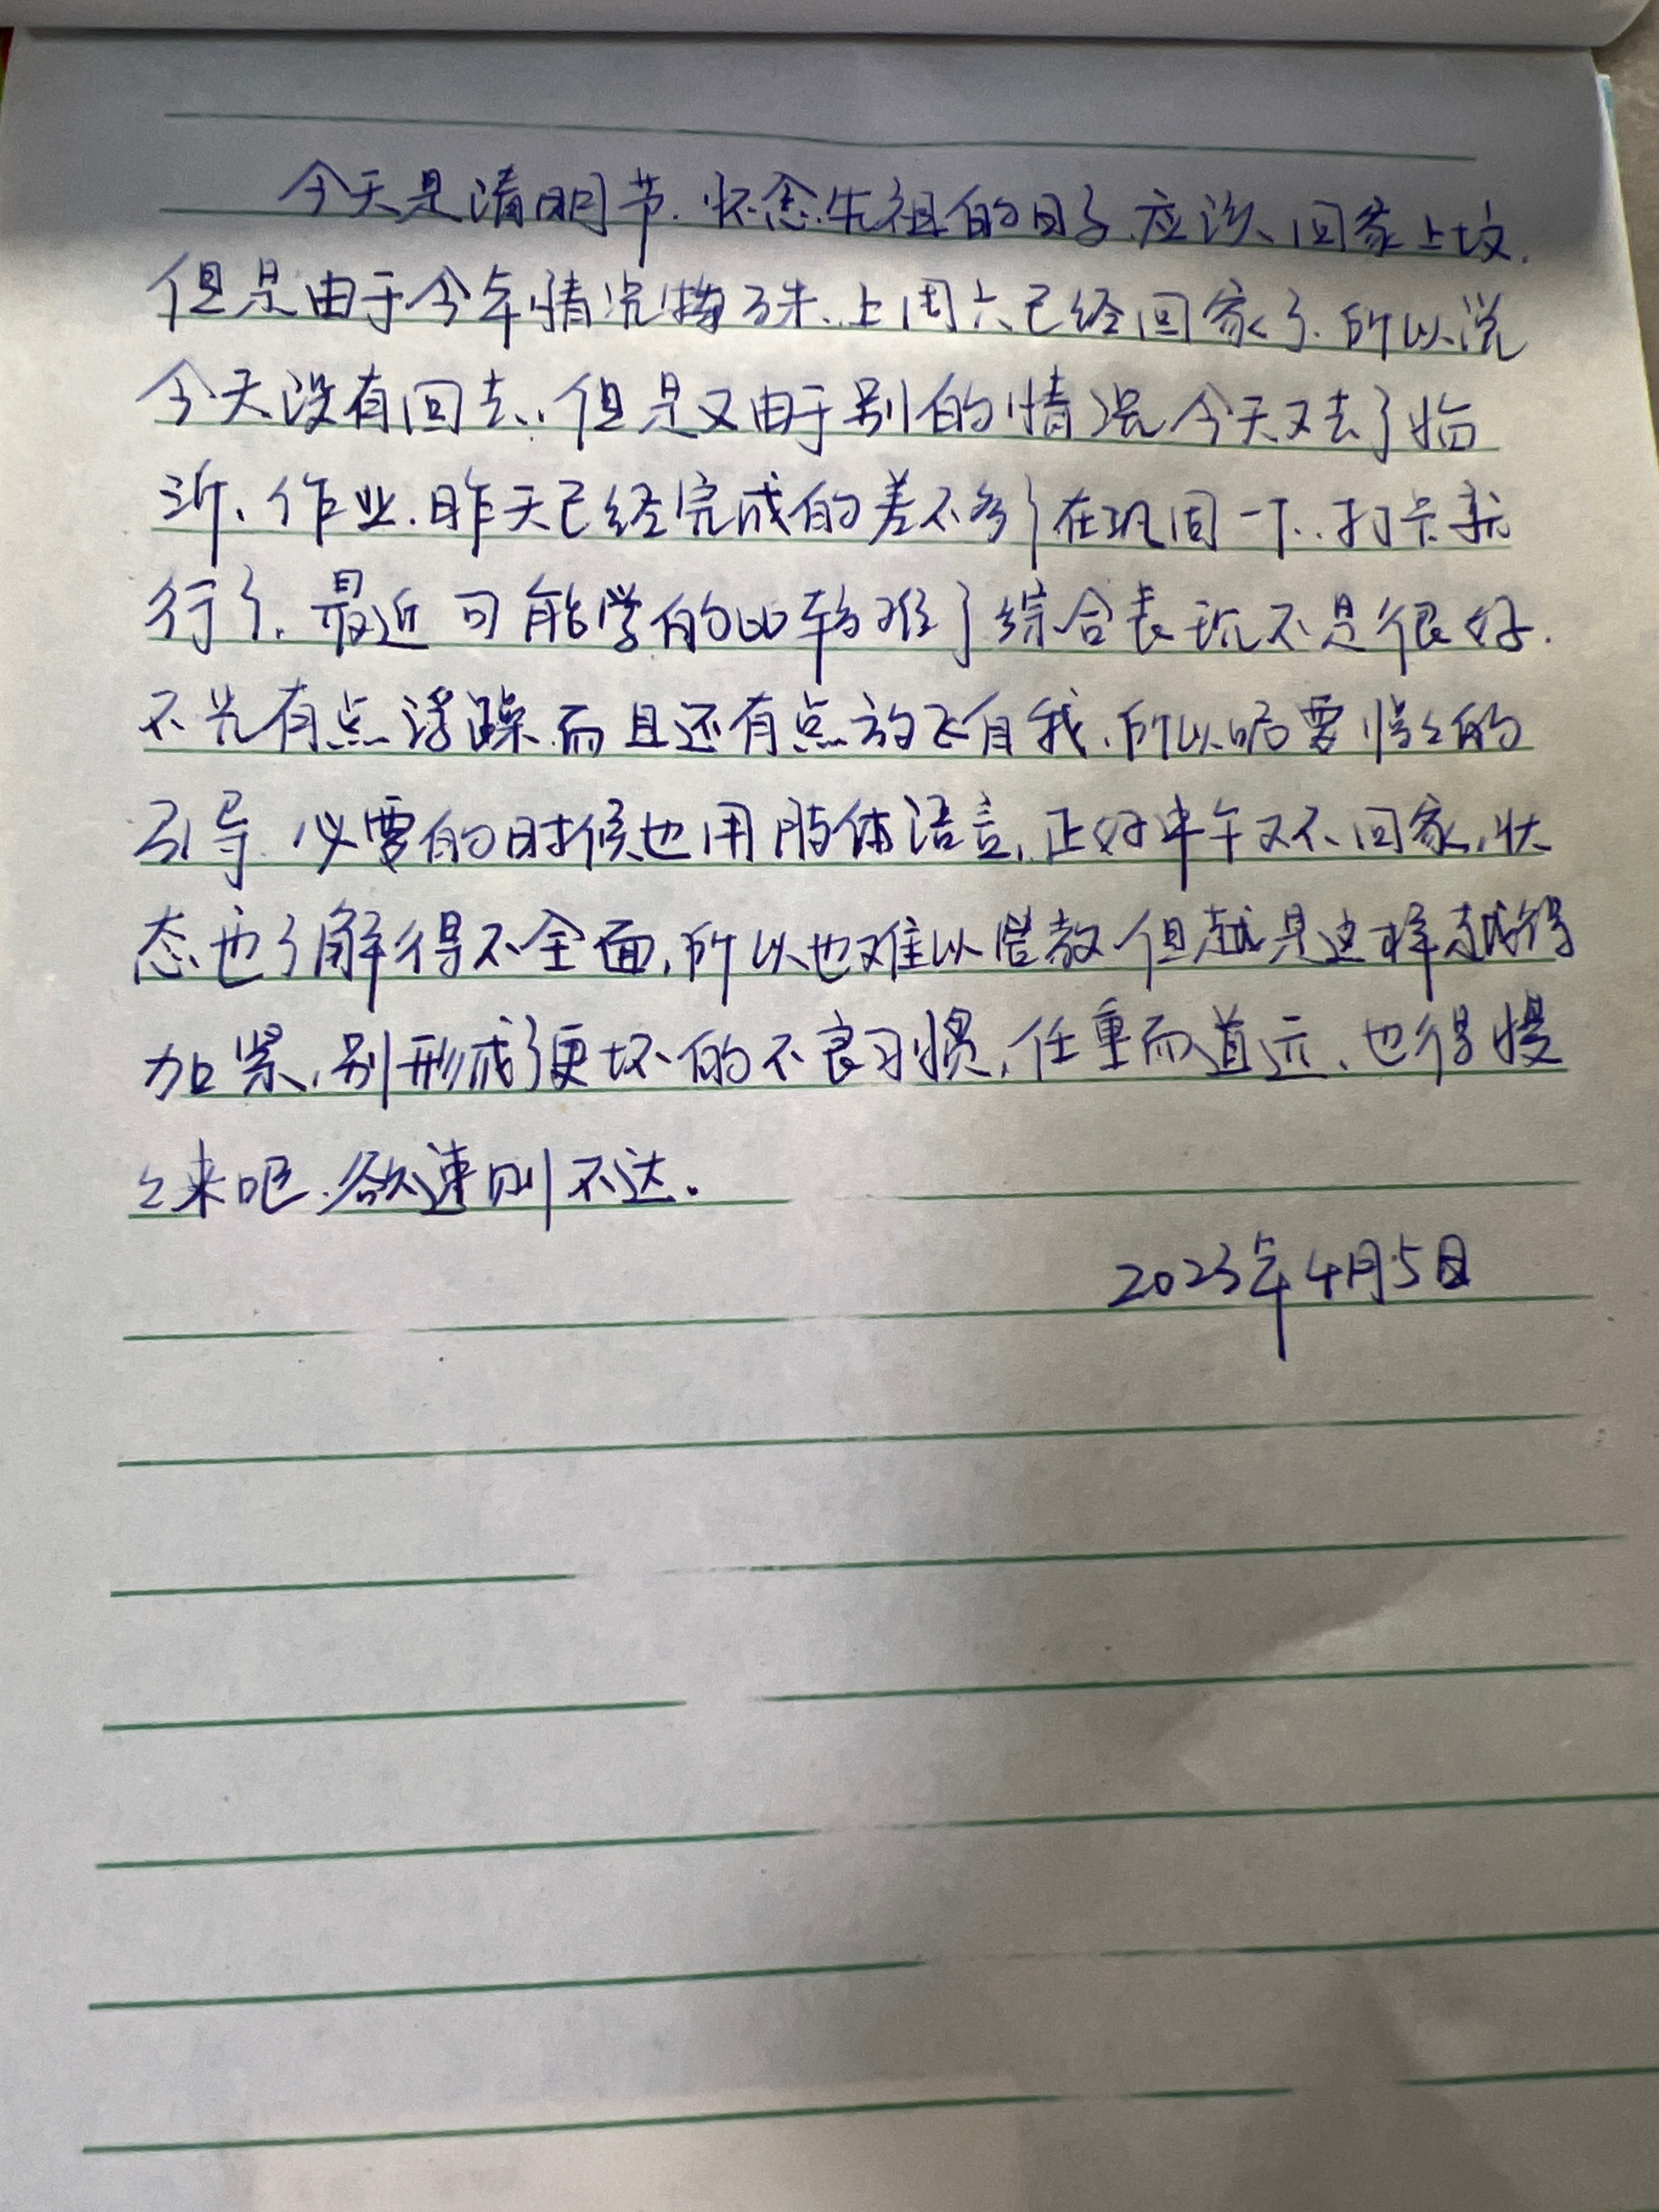 今天是清明节.怀念先祖的日子.应该回家上坟.
但是由于今年情况特殊.上周六已经回家了.所以说
今天没有回去.但是又由于别的情况今天又去了临
沂.作业.昨天已经完成的差不多了在巩固一下.打卡就
行了.最近可能学的比较难了综合表现不是很好.
不光有点浮躁.而且还有点放飞自我.所以呢要慢々的
引导.必要的时候也用肢体语言.正好中午又不回家.状
态也了解得不全面.所以也难以管教但越是这样越得
加紧.别形成了更坏的不良习惯.任重而道远.也得慢
々来吧.欲速则不达.
2023年4月5日